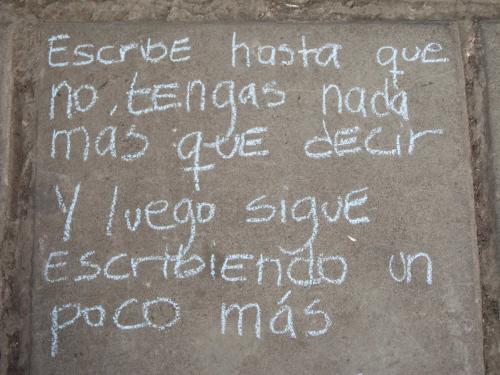 Escribe hasta que
no tengas nada
más que decir
Y luego sigue
escribiendo un
poco más